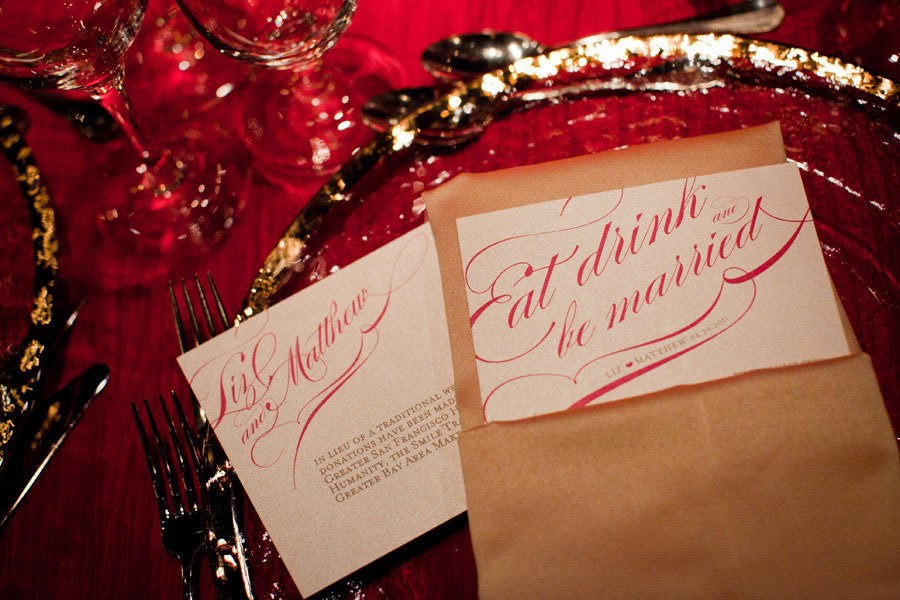 Liz
and Matthew
IN LIEU OF A TRADITIONAL
DONATIONS HAVE BEEN MADE
GREATER SAN FRANCISCO
HUMANITY, THE SMILE
GREATER BAY AREA
Eat drink and
be married
LIZ ♥ MATTHEW 08.20.2011